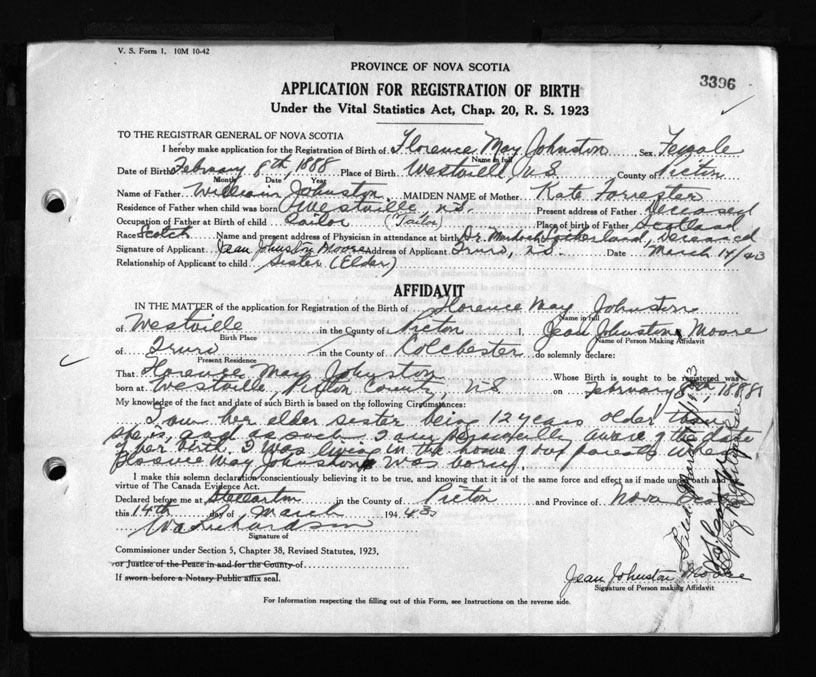 V. S. Form 1. 10M 10-42
PROVINCE OF NOVA SCOTIA
3396
APPLICATION FOR REGISTRATION OF BIRTH
Under the Vital Statistics Act, Chap. 20, R. S. 1923
TO THE REGISTRAR GENERAL OF NOVA SCOTIA
I hereby make application for the Registration of Birth of Florence May Johnston Sex Female
Name in full
Date of Birth February 8th, 1888 Place of Birth Westville N.S. County of Pictou
Month Date Year
Name of Father William Johnston MAIDEN NAME of Mother Kate Forrester
Residence of Father when child was born Westville N.S. Present address of Father Deceased
Occupation of Father at Birth of child Tailor (Tailor) Place of birth of Father Scotland
Race Scotch Name and present address of Physician in attendance at birth Dr. Murdoch Sutherland, Deceased
Signature of Applicant Jean Johnston Moore Address of Applicant Truro, N.S. Date March 14/43
Relationship of Applicant to child Sister (Elder)
AFFIDAVIT
IN THE MATTER of the application for Registration of the Birth of Florence May Johnston
Name in full
of Westville in the County of Pictou I, Jean Johnston Moore
Birth Place Name of Person Making Affidavit
of Truro in the County of Colchester do solemnly declare:
Present Residence
That Florence May Johnston Whose Birth is sought to be registered was
born at Westville, Pictou County, N.S. on February 8th, 1888
My knowledge of the fact and date of such Birth is based on the following Circumstances:
I am her elder sister being 12 years older than
she is, and as such I am aware of the date
of her birth. I was living in the home of our parents when
Florence May Johnston was born.
I make this solemn declaration conscientiously believing it to be true, and knowing that it is of the same force and effect as if made under oath and by
virtue of The Canada Evidence Act.
Declared before me at Stellarton in the County of Pictou and Province of Nova Scotia
this 14th day of March 194 43
Signature of
Commissioner under Section 5, Chapter 38, Revised Statutes, 1923,
or Justice of the Peace in and for the County of
If sworn before a Notary Public affix seal.
Jean Johnston Moore
Signature of Person making Affidavit
For Information respecting the filling out of this Form, see Instructions on the reverse side.